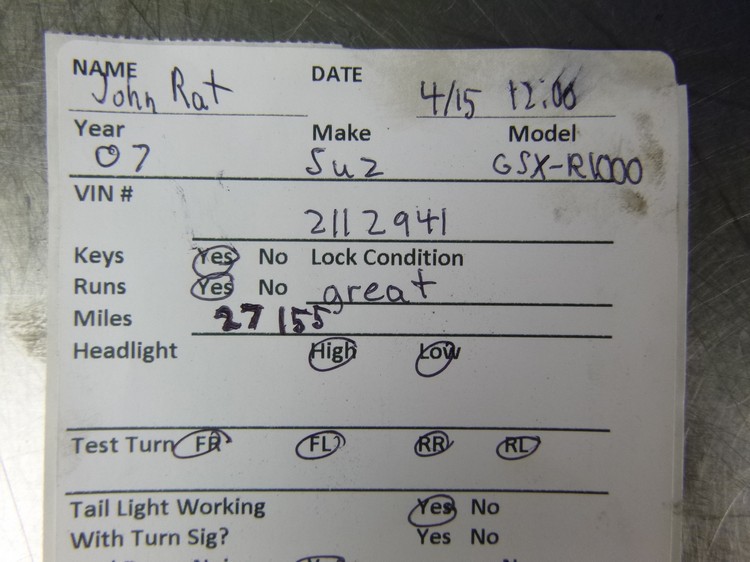 NAME John Rat DATE 4/15 12:00
Year Make Model
07 Suz GSX-R1000
VIN #
2112941
Keys Yes No Lock Condition
Runs Yes No great
Miles 27155
Headlight High Low
Test Turn FR FL RR RL
Tail Light Working Yes No
With Turn Sig? Yes No